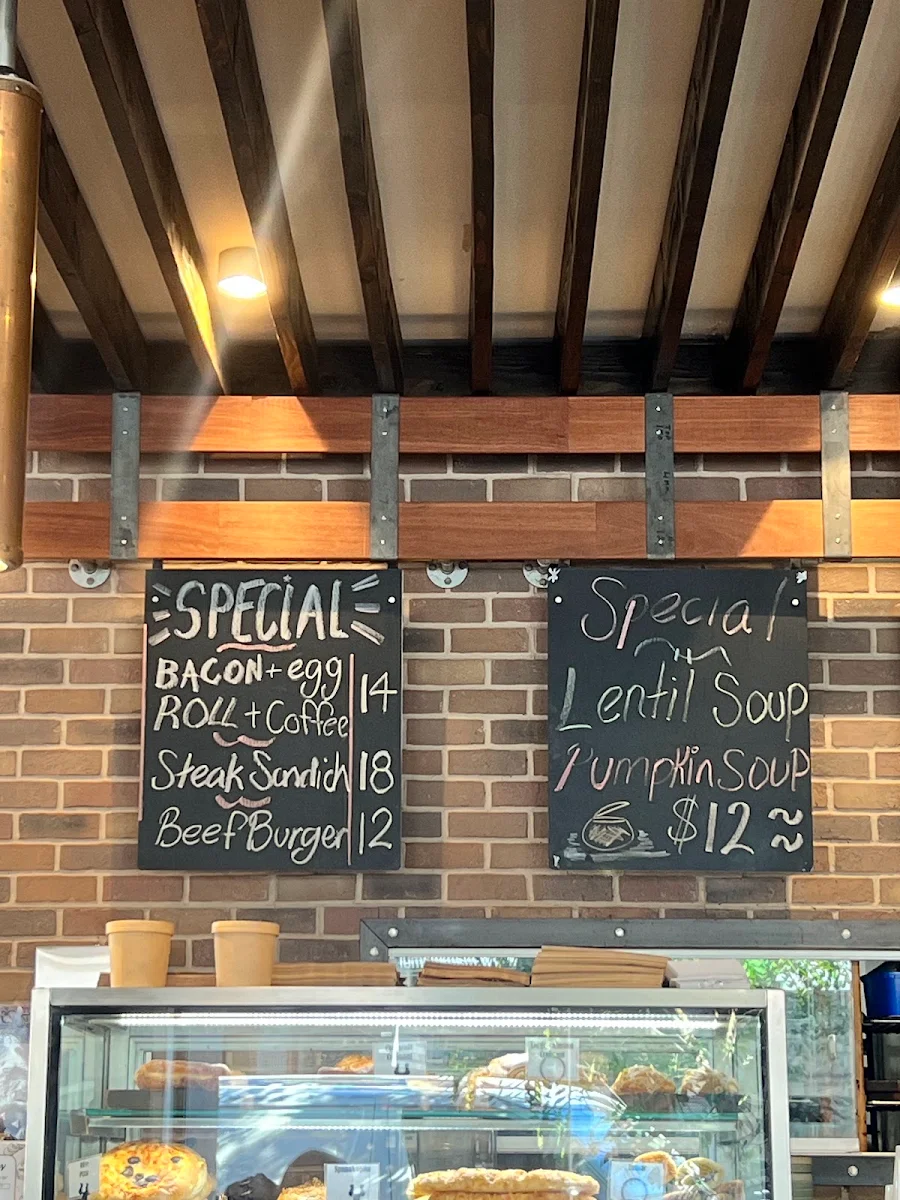 SPECIAL
BACON + egg
ROLL + Coffee
14
Steak Sandich 18
Beef Burger 12
Special
Lentil Soup
Pumpkin SOUP
$12